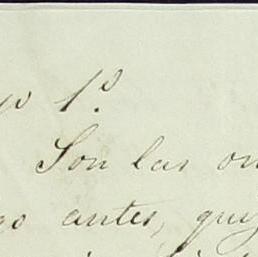 1º
Son las on
go antes, quiz